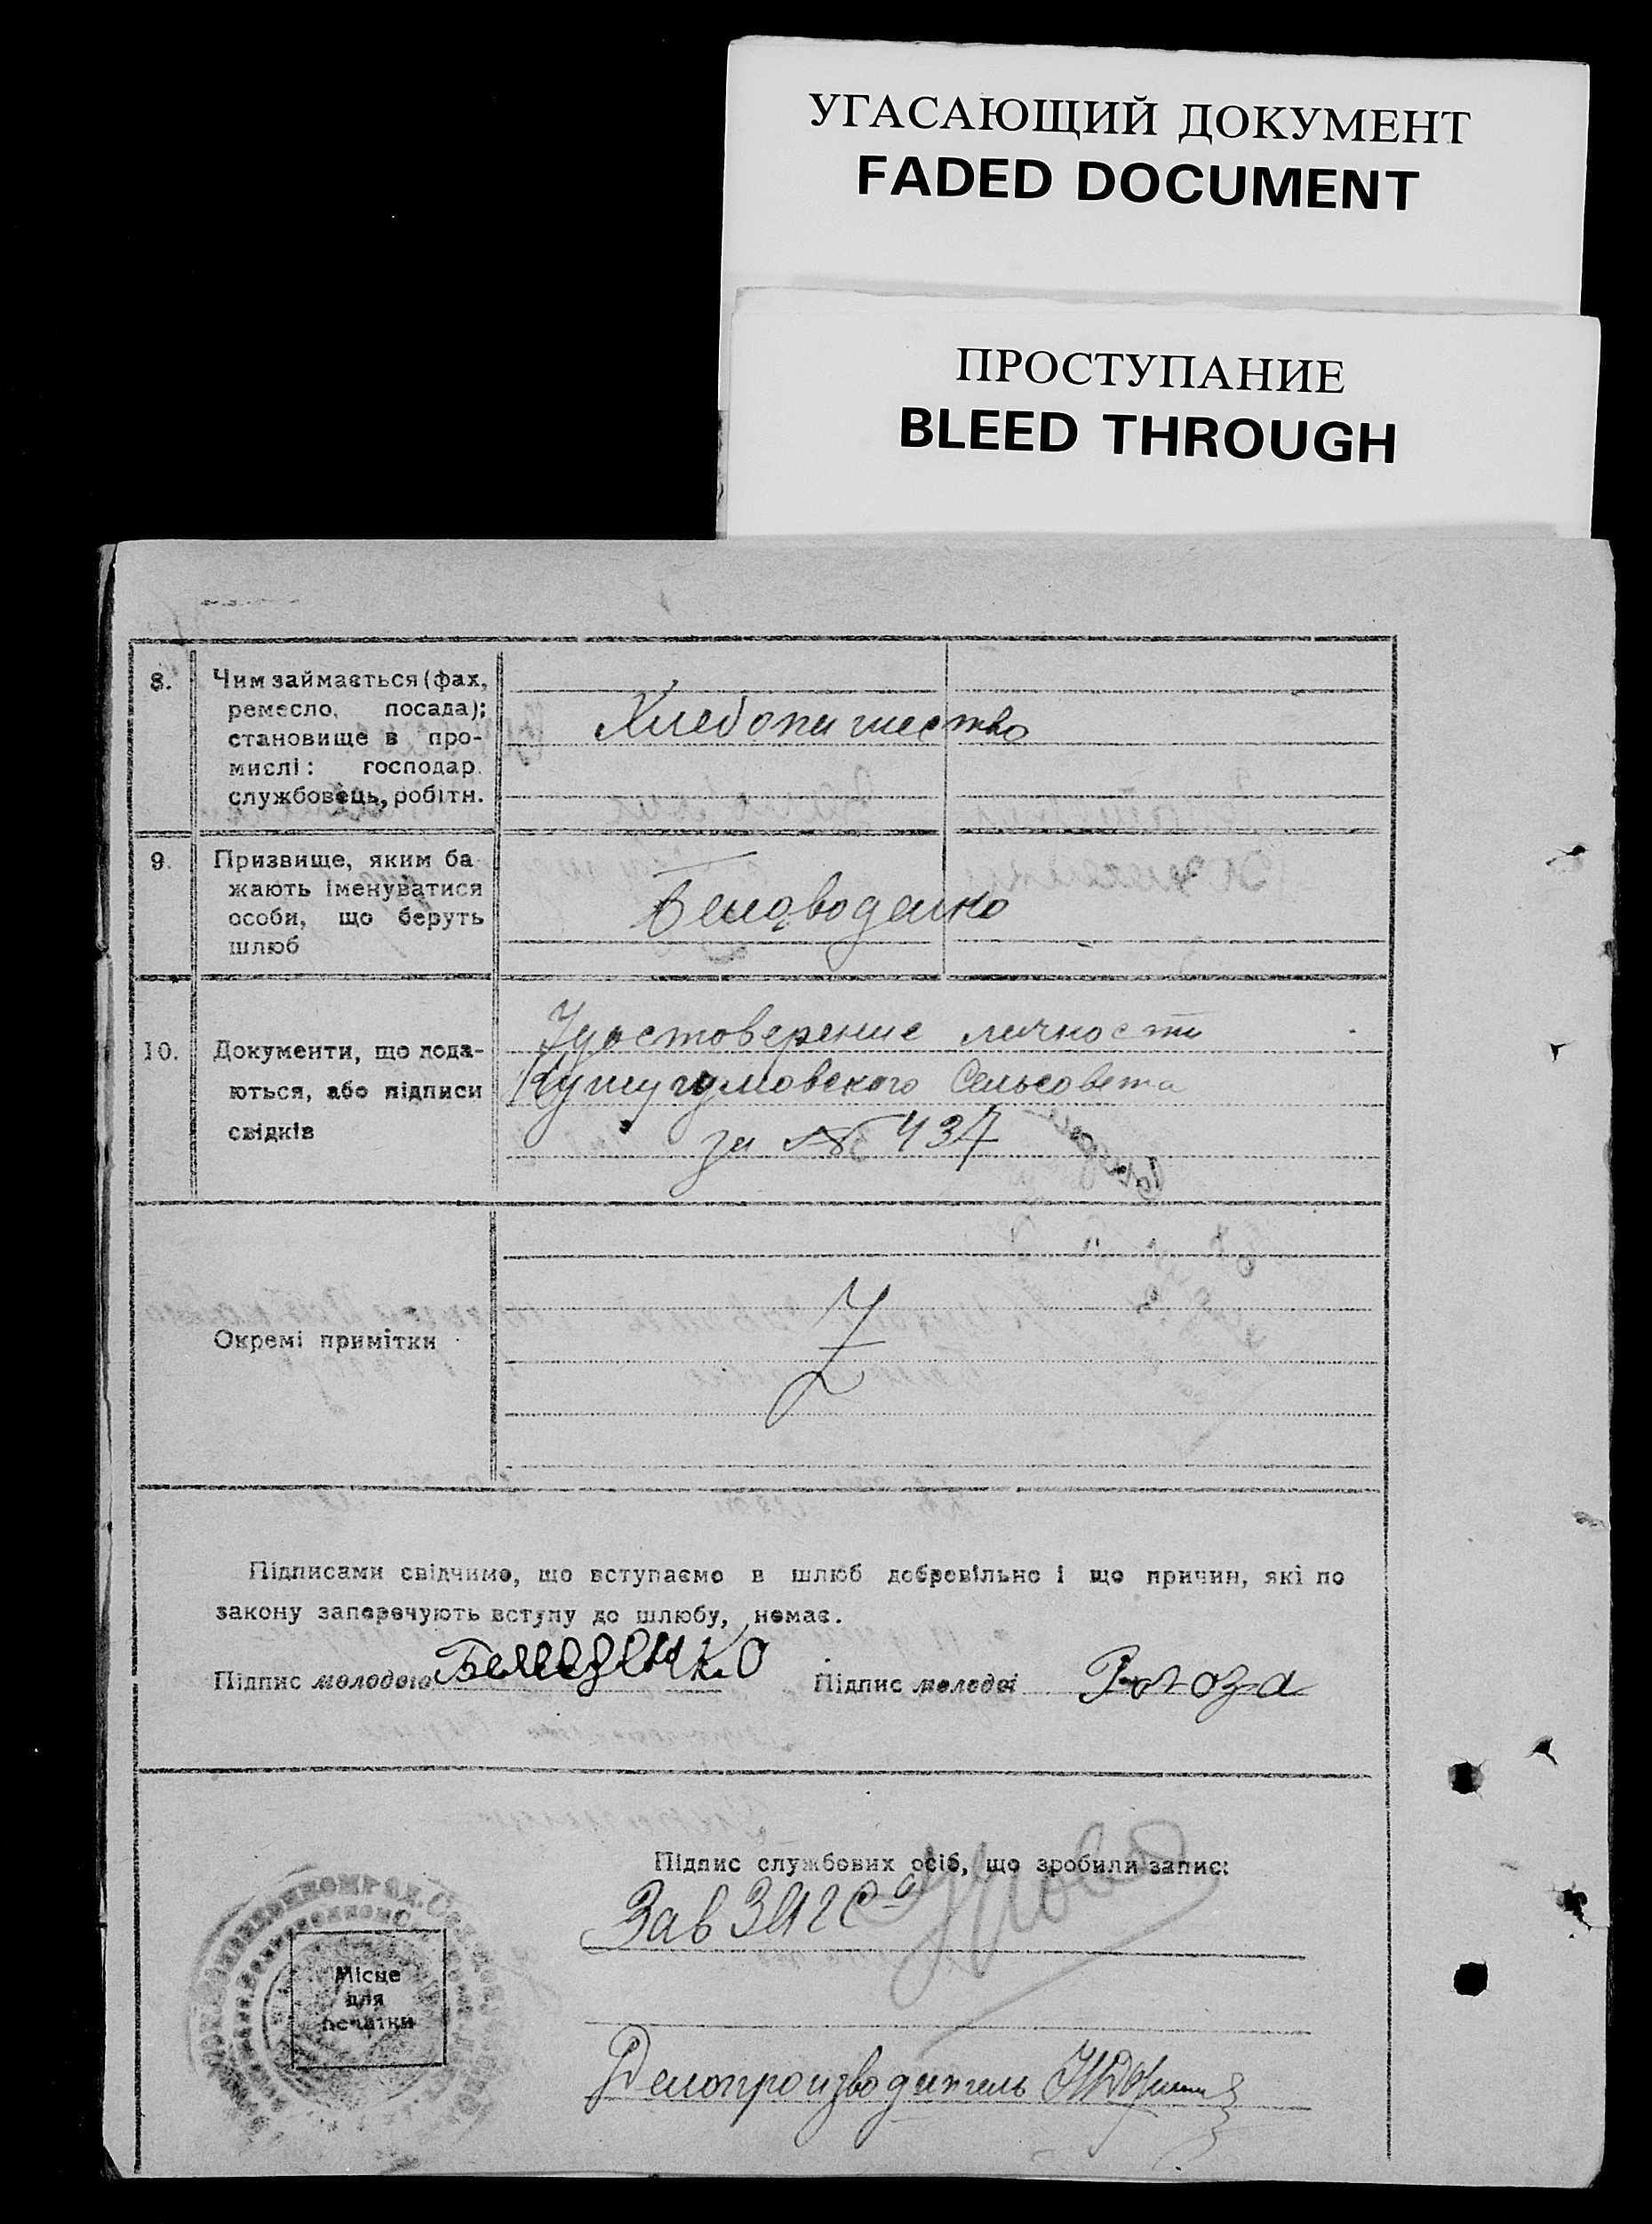 УГАСАЮЩИЙ ДОКУМЕНТ
FADED DOCUMENT
ПРОСТУПАНИЕ
BLEED THROUGH
8. Чим займається (фах,
ремесло, посада);
становище в про-
мислі: господар.
службовець, робітн.
Хлебопашество
9. Призвище, яким ба
жають іменуватися
особи, що беруть
шлюб
Беловоденко
10. Документи, що пода-
ються, або підписи
свідків
Удостоверение личности
Кушугумовского Сельсовета
за № 437
Окремі примітки
Z
Підписами свідчимо, що вступаємо в шлюб добровільно і що причин, які по
закону заперечують вступу до шлюбу, немає.
Підпис молодого
Підпис молодої Рогоза
Підпис службових осіб, що зробили запис:
Зав ЗАГС-а
Місце
для
печатки
Делопроизводитель